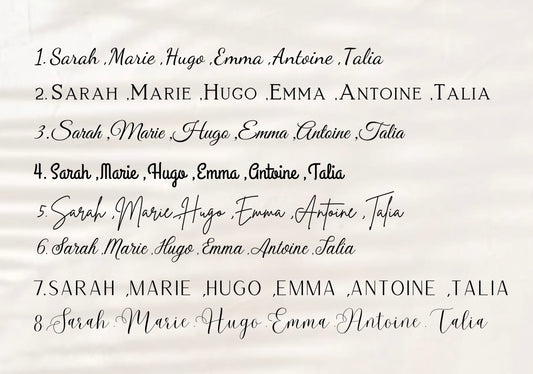 1. Sarah ,Marie ,Hugo ,Emma ,Antoine ,Talia
2. SARAH ,MARIE ,HUGO ,EMMA ,ANTOINE ,TALIA
3. Sarah ,Marie ,Hugo ,Emma ,Antoine ,Talia
4. Sarah ,Marie ,Hugo ,Emma ,Antoine ,Talia
5. Sarah ,Marie ,Hugo ,Emma ,Antoine ,Talia
6. Sarah ,Marie ,Hugo ,Emma ,Antoine ,Talia
7. SARAH ,MARIE ,HUGO ,EMMA ,ANTOINE ,TALIA
8 Sarah . Marie . Hugo . Emma . Antoine . Talia